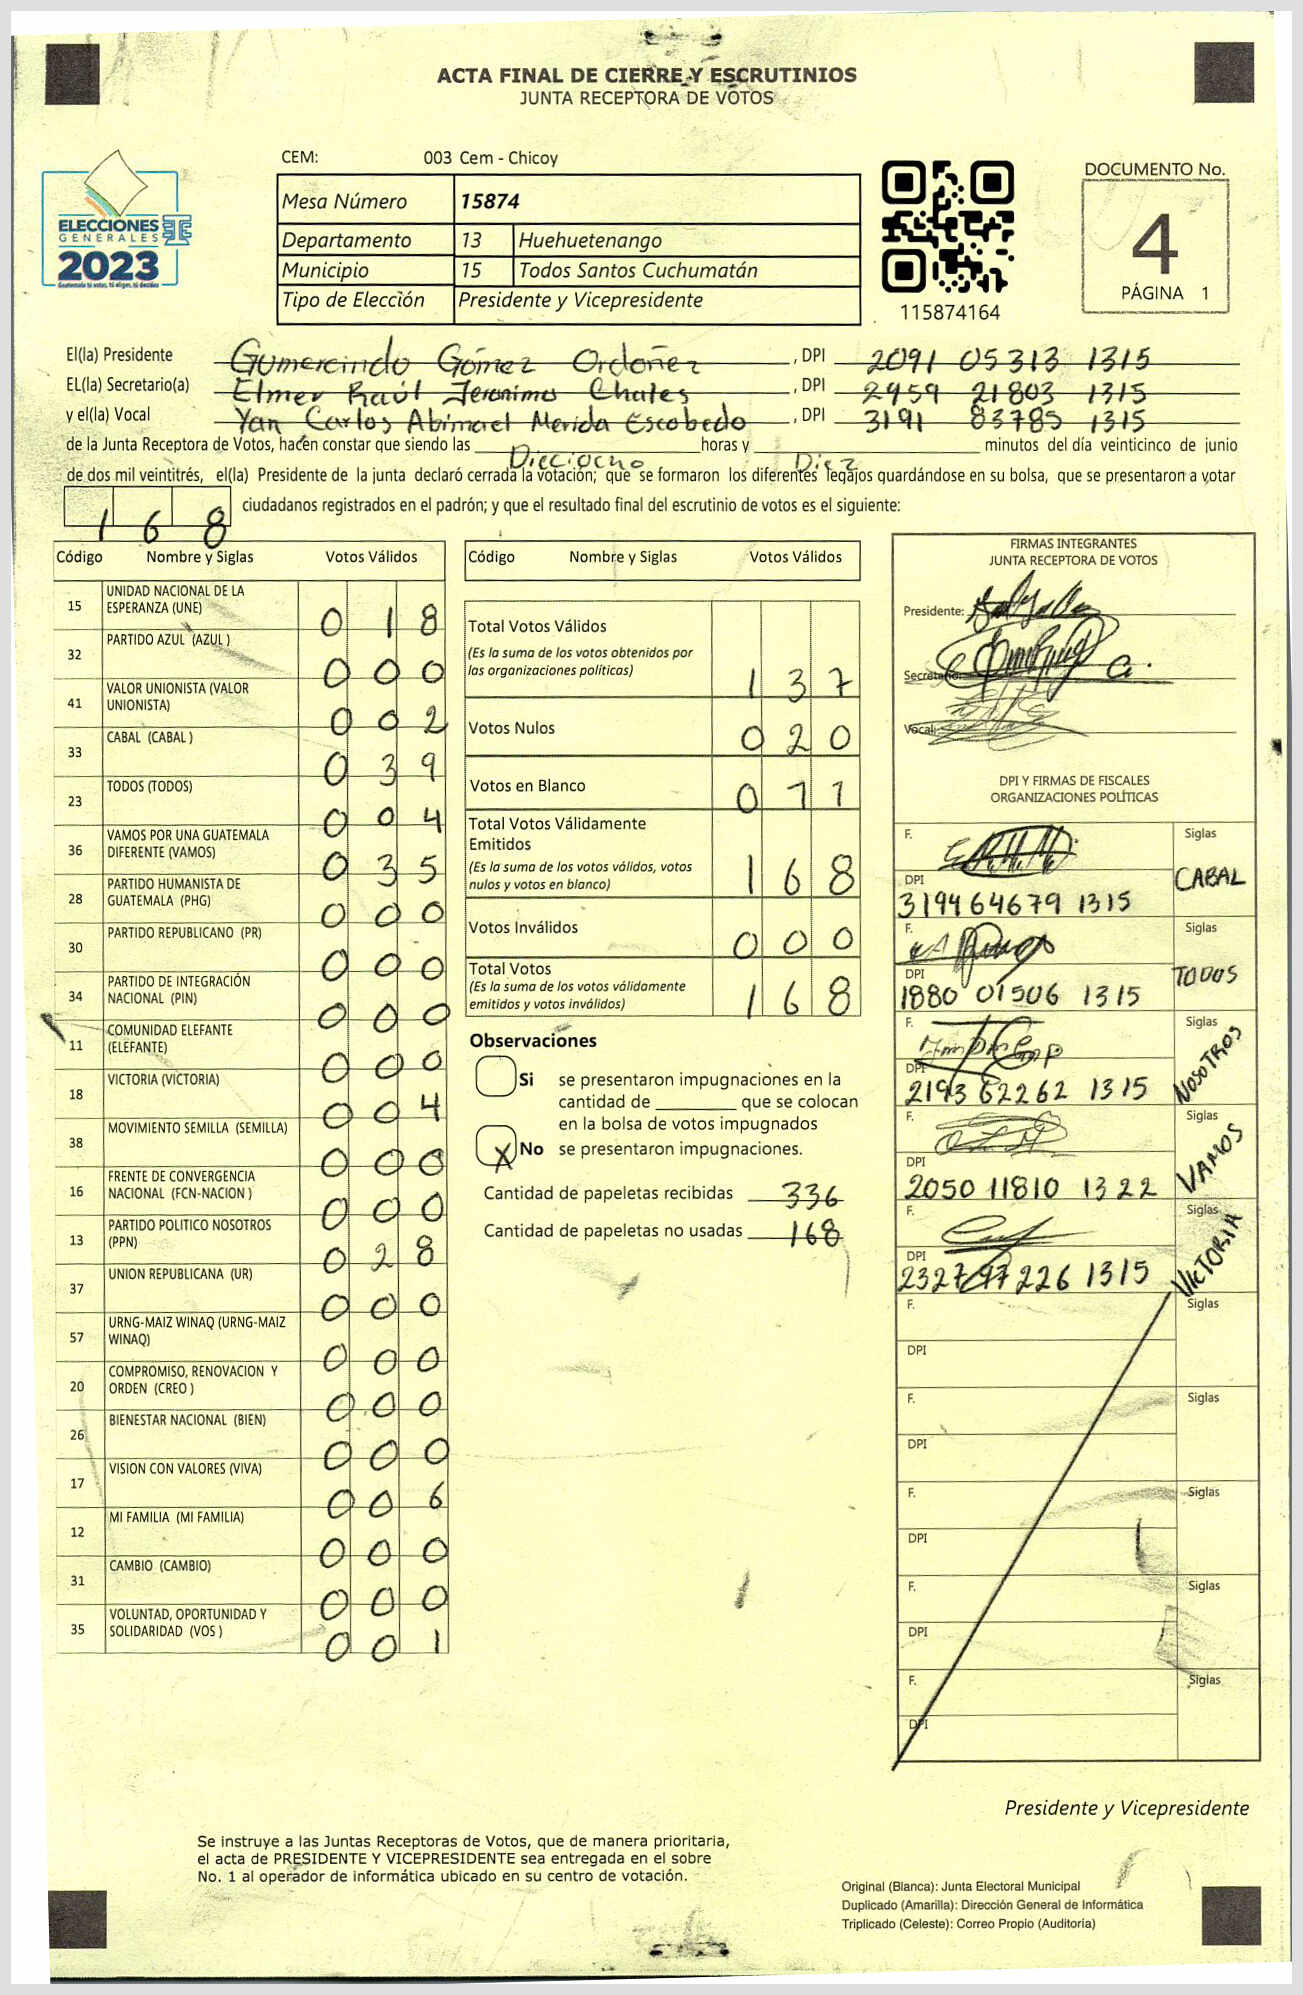 ACTA FINAL DE CIERRE Y ESCRUTINIOS
JUNTA RECEPTORA DE VOTOS
CEM: 003 Cem - Chicoy
ELECCIONES
GENERALES
2023
Guatemala tú votas, tú eliges, tú decides
Mesa Número 15874
Departamento 13 Huehuetenango
Municipio 15 Todos Santos Cuchumatán
Tipo de Elección Presidente y Vicepresidente
115874164
DOCUMENTO No.
4
PÁGINA 1
El(la) Presidente Gumercindo Gómez Ordoñez , DPI 2091 05313 1315
EL(la) Secretario(a) Elmer Raúl Jeronimo Chales , DPI 2959 21803 1315
y el(la) Vocal Yan Carlos Abimael Merida Escobedo , DPI 3191 83785 1315
de la Junta Receptora de Votos, hacen constar que siendo las Dieciocho horas y Diez minutos del día veinticinco de junio
de dos mil veintitrés, el(la) Presidente de la junta declaró cerrada la votación; que se formaron los diferentes legajos guardándose en su bolsa, que se presentaron a votar
168 ciudadanos registrados en el padrón; y que el resultado final del escrutinio de votos es el siguiente:
Código Nombre y Siglas Votos Válidos
15 UNIDAD NACIONAL DE LA ESPERANZA (UNE) 0 1 8
32 PARTIDO AZUL (AZUL ) 0 0 0
41 VALOR UNIONISTA (VALOR UNIONISTA) 0 0 2
33 CABAL (CABAL ) 0 3 9
23 TODOS (TODOS) 0 0 4
36 VAMOS POR UNA GUATEMALA DIFERENTE (VAMOS) 0 3 5
28 PARTIDO HUMANISTA DE GUATEMALA (PHG) 0 0 0
30 PARTIDO REPUBLICANO (PR) 0 0 0
34 PARTIDO DE INTEGRACIÓN NACIONAL (PIN) 0 0 0
11 COMUNIDAD ELEFANTE (ELEFANTE) 0 0 0
18 VICTORIA (VICTORIA) 0 0 4
38 MOVIMIENTO SEMILLA (SEMILLA) 0 0 0
16 FRENTE DE CONVERGENCIA NACIONAL (FCN-NACION ) 0 0 0
13 PARTIDO POLITICO NOSOTROS (PPN) 0 2 8
37 UNION REPUBLICANA (UR) 0 0 0
57 URNG-MAIZ WINAQ (URNG-MAIZ WINAQ) 0 0 0
20 COMPROMISO, RENOVACION Y ORDEN (CREO ) 0 0 0
26 BIENESTAR NACIONAL (BIEN) 0 0 0
17 VISION CON VALORES (VIVA) 0 0 6
12 MI FAMILIA (MI FAMILIA) 0 0 0
31 CAMBIO (CAMBIO) 0 0 0
35 VOLUNTAD, OPORTUNIDAD Y SOLIDARIDAD (VOS ) 0 0 1
Código Nombre y Siglas Votos Válidos
Total Votos Válidos
(Es la suma de los votos obtenidos por
las organizaciones políticas) 1 3 7
Votos Nulos 0 2 0
Votos en Blanco 0 1 1
Total Votos Válidamente
Emitidos
(Es la suma de los votos válidos, votos
nulos y votos en blanco) 1 6 8
Votos Inválidos 0 0 0
Total Votos
(Es la suma de los votos válidamente
emitidos y votos inválidos) 1 6 8
Observaciones
Si se presentaron impugnaciones en la
cantidad de ________ que se colocan
en la bolsa de votos impugnados
X No se presentaron impugnaciones.
Cantidad de papeletas recibidas 336
Cantidad de papeletas no usadas 168
FIRMAS INTEGRANTES
JUNTA RECEPTORA DE VOTOS
Presidente:
Secretario:
Vocal:
DPI Y FIRMAS DE FISCALES
ORGANIZACIONES POLÍTICAS
F. Siglas
DPI CABAL
3194 64679 1315
F. Siglas
DPI TODOS
1880 01506 1315
F. Siglas
DPI NOSOTROS
2193 62262 1315
F. Siglas
DPI VAMOS
2050 11810 1322
F. Siglas
DPI VICTORIA
2327 97226 1315
F. Siglas
DPI
F. Siglas
DPI
F. Siglas
DPI
F. Siglas
DPI
F. Siglas
DPI
Presidente y Vicepresidente
Se instruye a las Juntas Receptoras de Votos, que de manera prioritaria,
el acta de PRESIDENTE Y VICEPRESIDENTE sea entregada en el sobre
No. 1 al operador de informática ubicado en su centro de votación.
Original (Blanca): Junta Electoral Municipal
Duplicado (Amarilla): Dirección General de Informática
Triplicado (Celeste): Correo Propio (Auditoría)